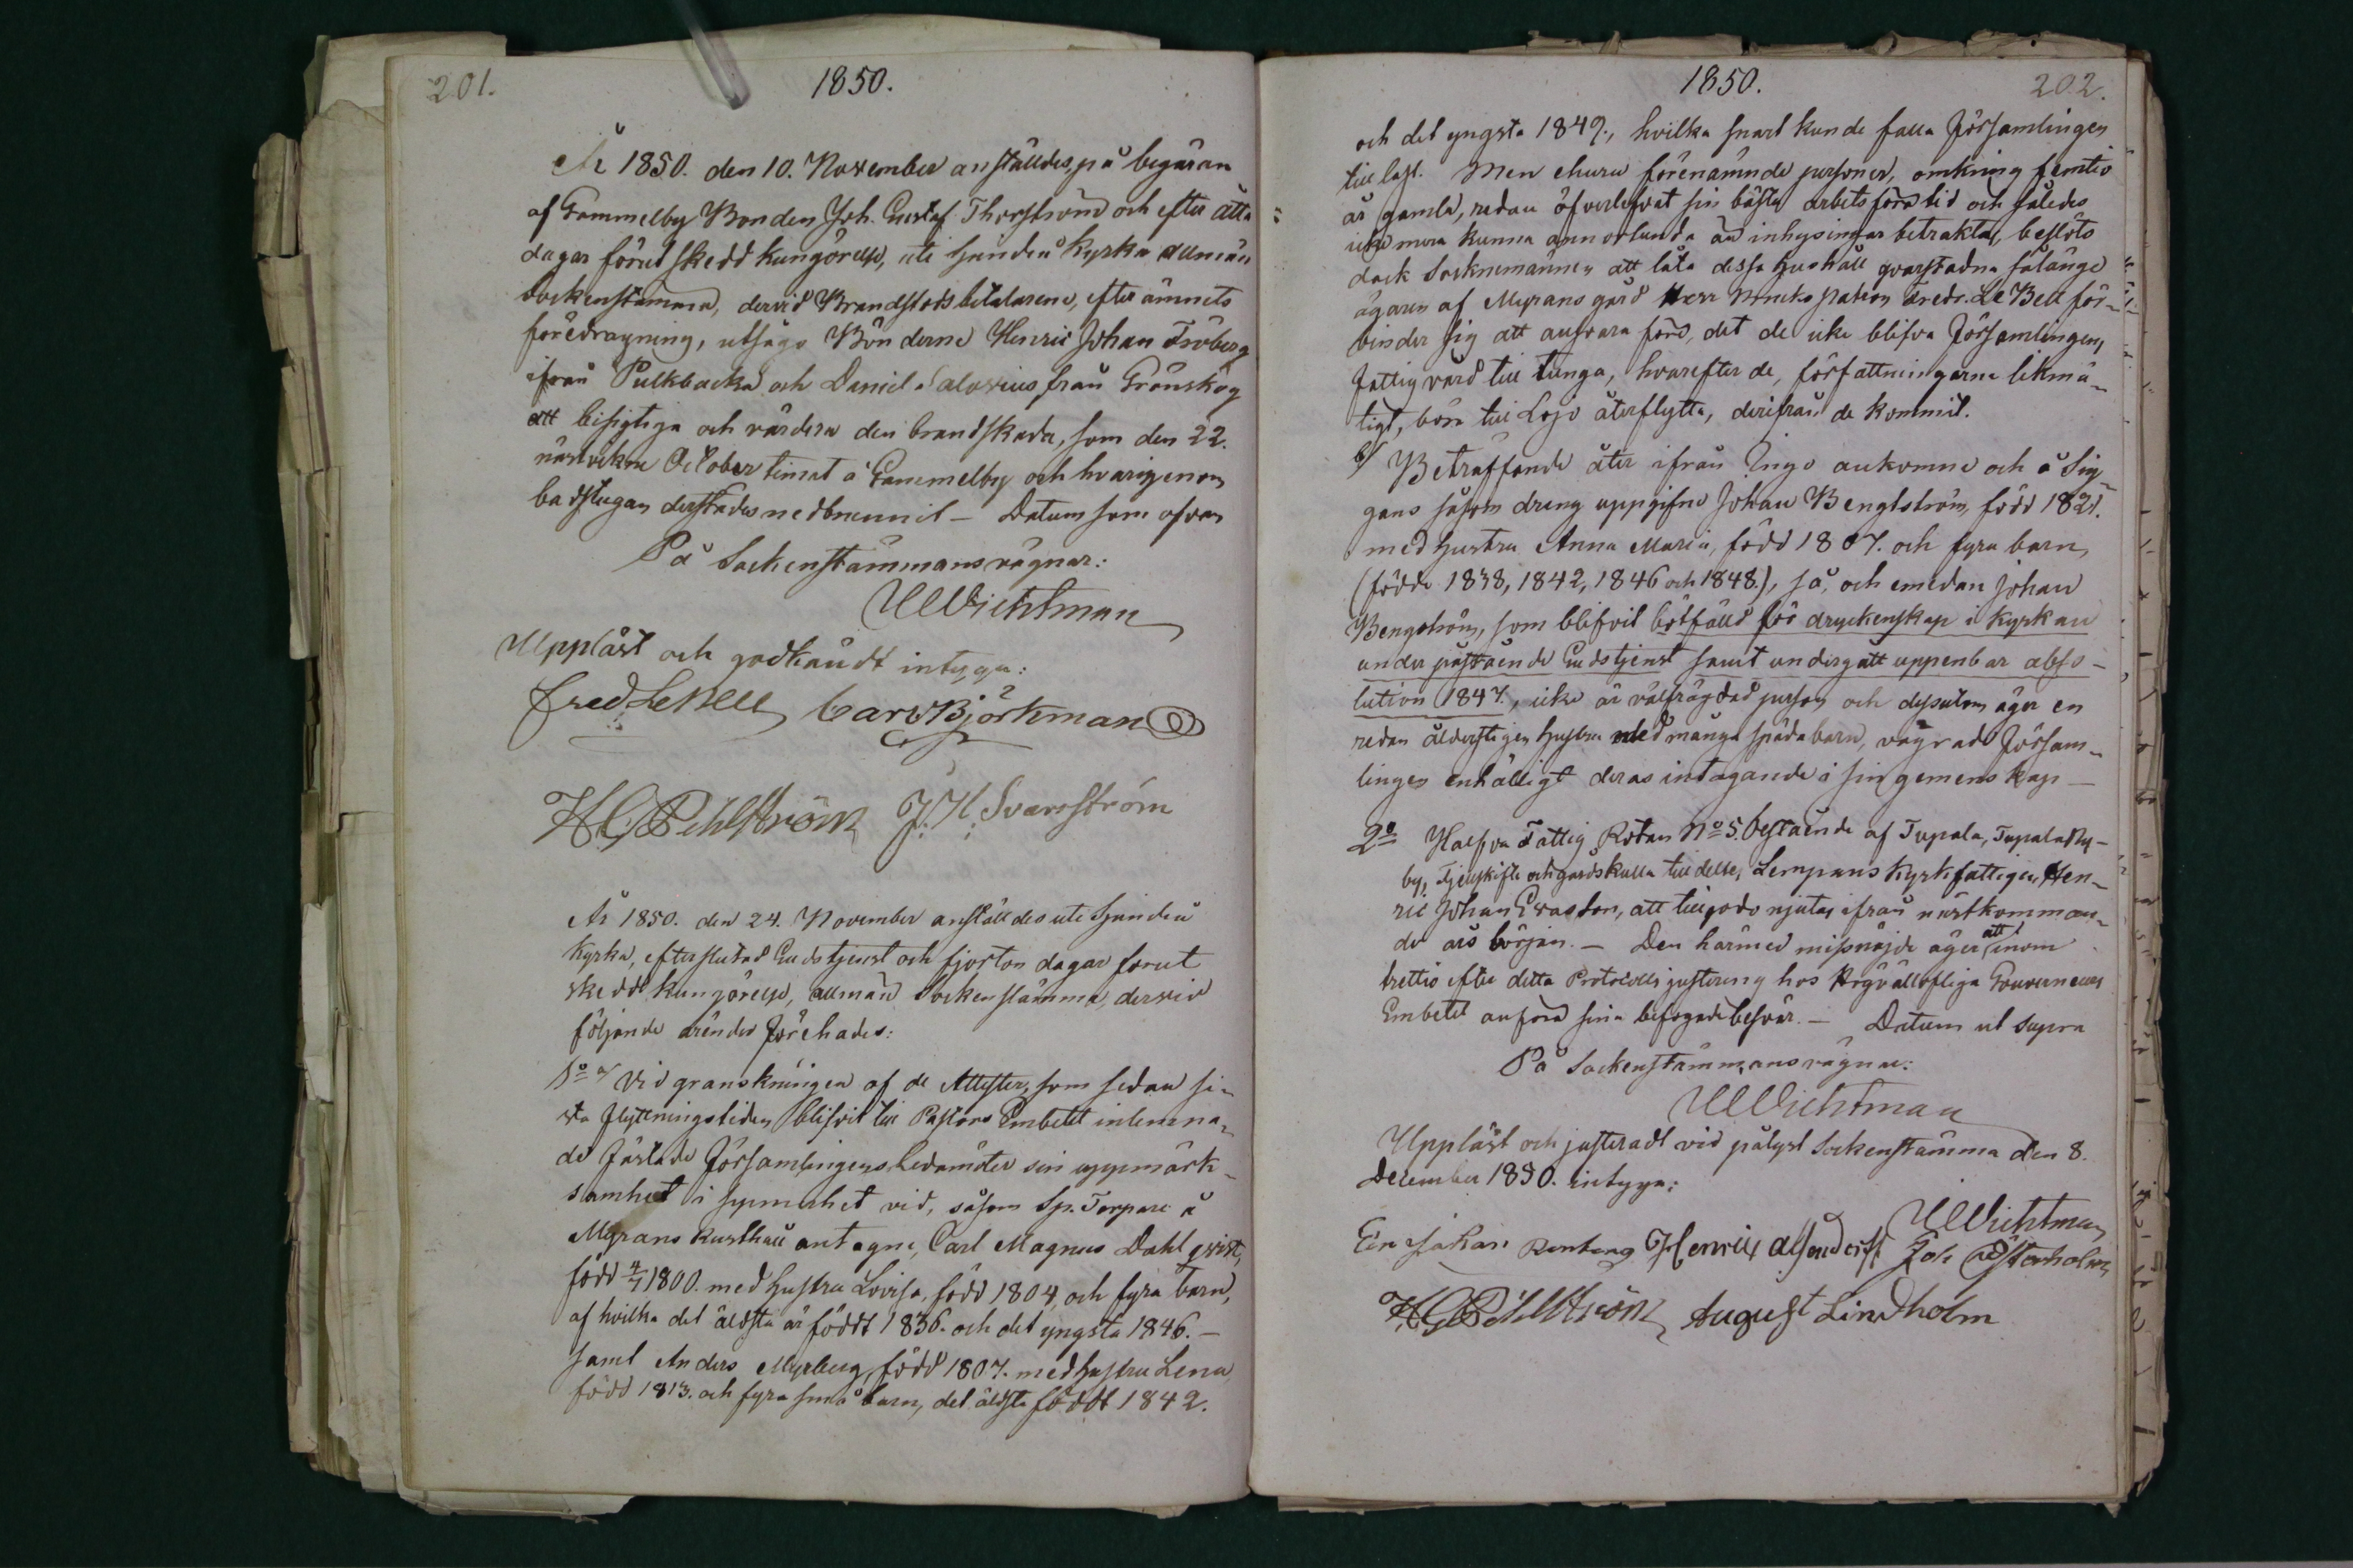 201.
1850.
År 1850. den 10. November anställdes, på begäran
af Gammelby Bonden Joh. Gustaf Thorström och efter åtta
dagar förut skedd kungörelse, uti Sjundeå Kyrka allmän
Sockenstämma, dervid Brandstodsbetalarene, efter ämnets
föredragning, utsågo Bönderne Henric Johan Fröberg
ifrån Pulkbacka och Daniel Saloxius från Grönskog
att besigtiga och värdera den brandskada, som den 22.
nästvekne October timat å Gammelby och hvarigenom
badstugan derstädes nedbrunnit – Datum som ofvan
På Sockenstämmans vägnar:
UWichtman
Uppläst och godkändt intyga:
Fred LeBell Carl Björkman
HGPihlström J. H. Svanström
År 1850. den 24. November anställdes uti Sjundeå
Kyrka, efter slutad Gudstjenst och fjorton dagar förut
skedd kungörelse, allmän Sockenstämma, dervid
följande ärender förehades:
1º a/ Vid granskningen af de Attester, som sedan si-
sta flyttningstiden blifvit till Pastors Embetet inlemna-
de fästade Församlingens Ledamöter sin uppmärk-
samhet i synnerhet vid, såsom Sp. Torpare å
Myrans kusthäll antagne, Carl Magnus Dahlqvist,
född 4/7 1800. med hustru Lovisa, född 1804, och fyra barn,
af hvilka det äldsta är födt 1836. och det yngsta 1846. –
samt Anders Myrberg, född 1807. med hustru Lena
född 1813. och fyra små barn, det äldsta födt 1842.
1850.
202.
och det yngsta 1849., hvilka snart kunde falla Församlingen
till last. Men ehuru förenämnde personer, omkring femtio
år gamla, redan öfverlefvat sin bästa arbetsföra tid och således
icke mera kunna annorlunda än inhysingar betraktas, beslöts
dock Socknemännen att låta dessa hushåll qvarstadna sålänge
ägaren af Myrans gård Herr Brukspatron Fredr. Le Bell för-
binder sig att ansvara före, det de icke blifva Församlingens
fattigvård till tunga, hvarefter de, författningarne likmä-
tigt, böra till Lojo återflytta, derifrån de kommit.
b/ Beträffande åter ifrån Ingo ankomne och å Sig-
gans såsom dräng uppgifne Johan Bengtström, född 1821.
med hustru Anna Maria, född 1807. och fyra barn,
(födde 1838, 1842, 1846 och 1848.), så, och emedan Johan
Bengström, som blifvit bötfälld för dryckenskap i Kyrkan
under påstående Gudstjenst samt undergått uppenbar abso-
lution 1847., icke är välfrägdad person och dessutom äger en
redan ålderstigen hustru med många späda barn, vägrade Försam-
lingen enhälligt deras intagande i sin gemenskap –
2º Halfva Fattig Rotan Nº 5. bestående af Tupala, Tupala Ny-
by, Fjellskifte och gårdskulla tilldeltes Lempans Kyrkfattigen Hen-
ric Johan Ersson, att tillgodo njutas ifrån nästkomman-
de års början. – Den härmed missnöjde äger att inom
trettio efter detta Protocolls justering hos Högvällofliga Gouverneurs
Embetet anföra sina befogade besvär. – Datum ut supra
På Sockenstämmans vägnar:
UWichtman
Uppläst och justeradt vid pålyst Sockenstämma den 8.
December 1850. intyga:
UWichtman
Henrik Joh Österholm
HGPihlström August Lindholm